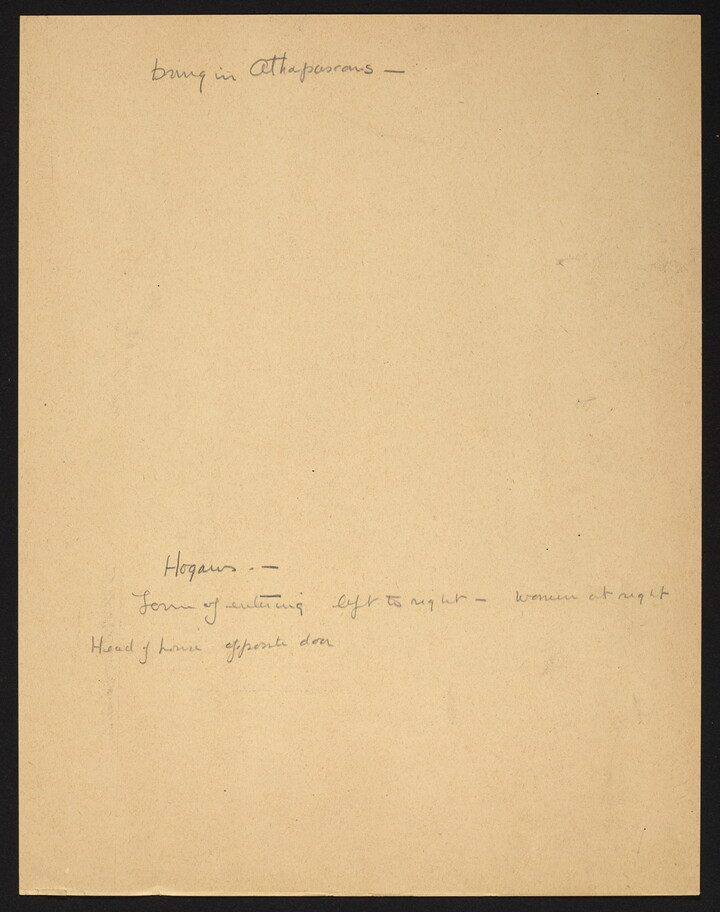 bring in Athapascans —
Hogans. —
Form of entering left to right — women at right
Head of house opposite door